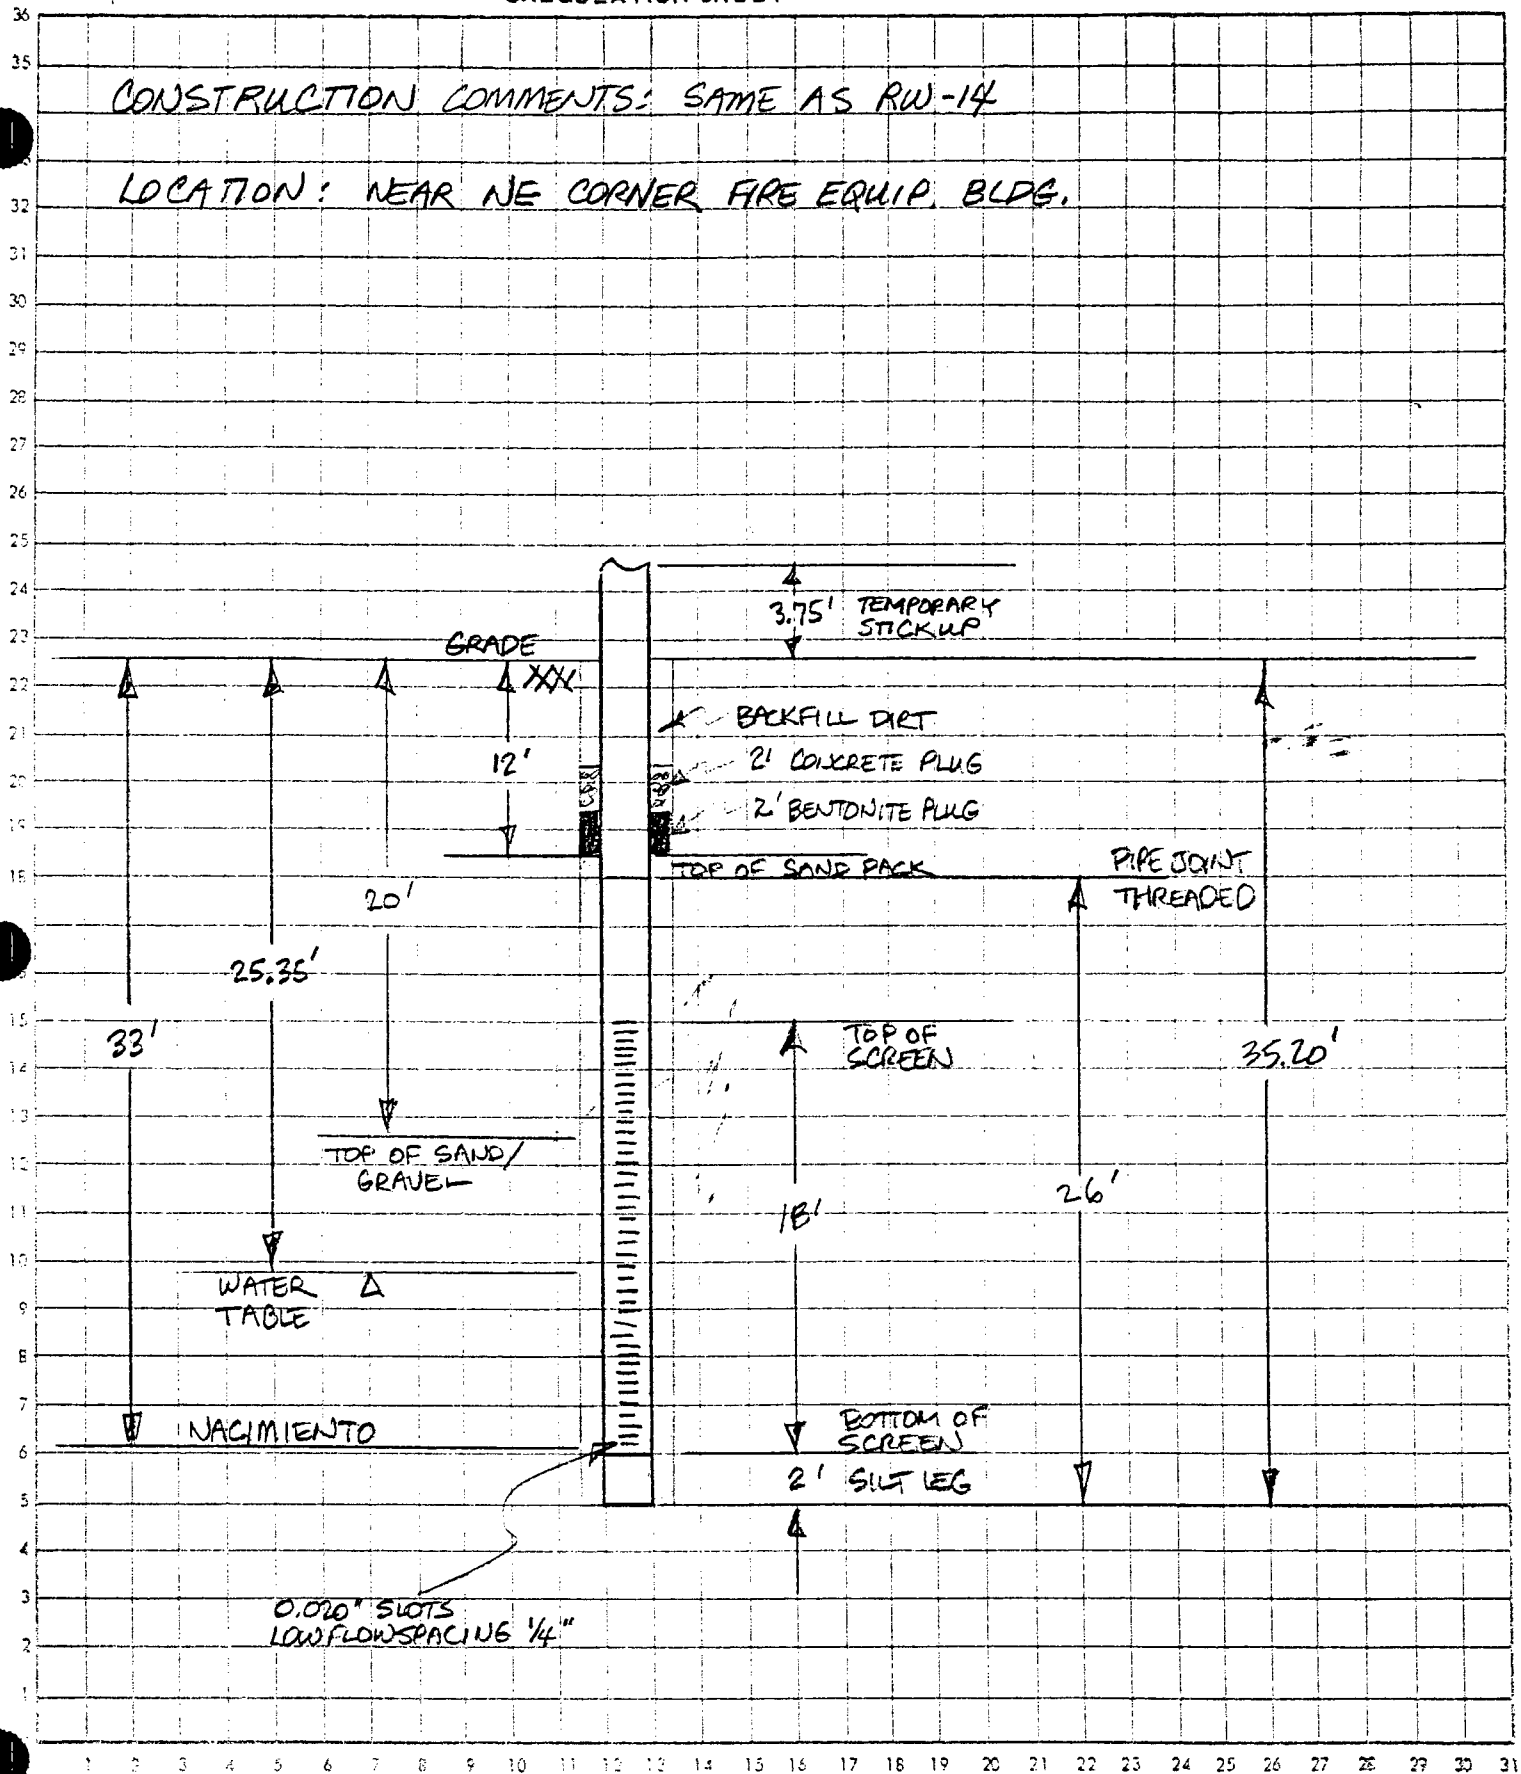 CONSTRUCTION COMMENTS: SAME AS RW-14
LOCATION: NEAR NE CORNER FIRE EQUIP. BLDG.
3.75' TEMPORARY
STICKUP
GRADE
XXX
BACKFILL DIRT
12'
2' CONCRETE PLUG
2' BENTONITE PLUG
TOP OF SAND PACK
PIPE JOINT
THREADED
20'
25.35'
33'
TOP OF
SCREEN
35.20'
TOP OF SAND/
GRAVEL
18'
26'
WATER
TABLE
NACIMIENTO
BOTTOM OF
SCREEN
2' SILT LEG
0.020" SLOTS
LOW FLOW SPACING 1/4"
36
35
32
31
30
29
28
27
26
25
24
23
22
21
20
19
18
15
14
13
12
11
10
9
8
7
6
5
4
3
2
1
1 2 3 4 5 6 7 8 9 10 11 12 13 14 15 16 17 18 19 20 21 22 23 24 25 26 27 28 29 30 31